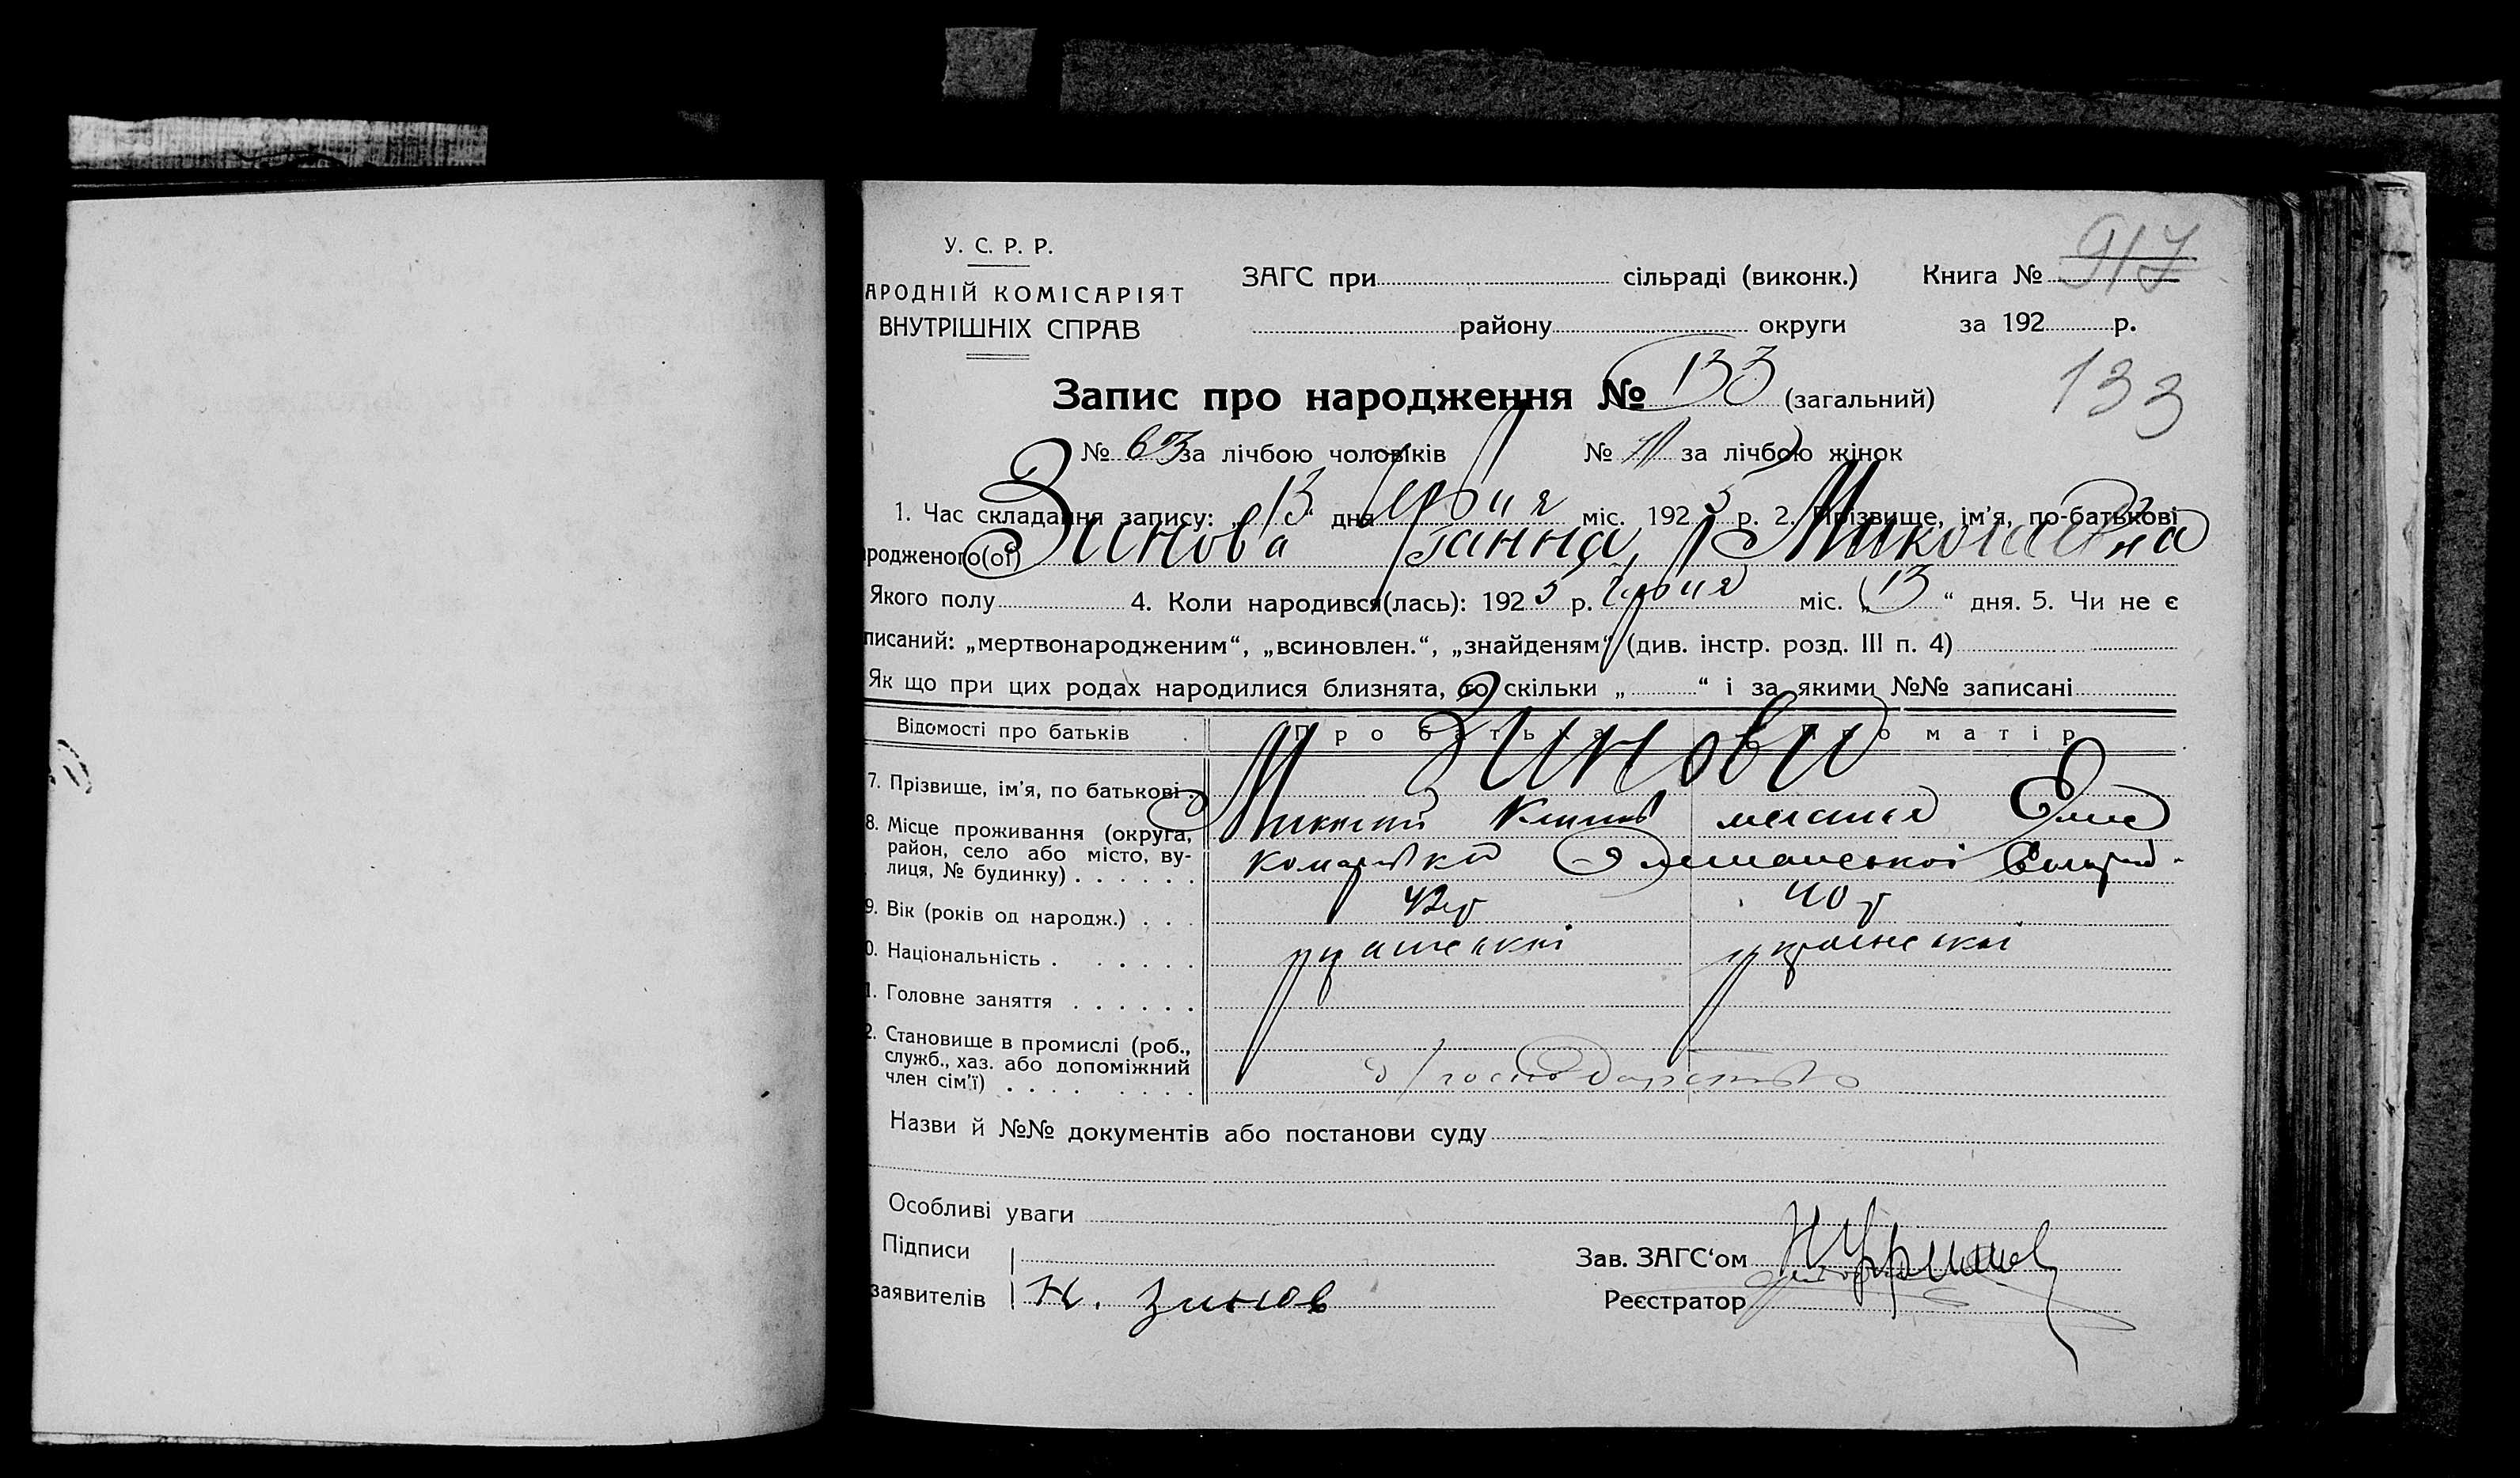 917
У. С. Р. Р.
АРОДНІЙ КОМІСАРІЯТ
ВНУТРІШНІХ СПРАВ
ЗАГС при сільраді (виконк.) Книга №
району округи за 192 р.
Запис про народження № 133 (загальний)
133
№ 63 за лічбою чоловіків № за лічбою жінок
1. Час складання запису: „13“ дня міс. 1925 р. 2. Прізвище, ім'я, по-батькові
родженого(ої) Зинова Ганна Миколаевна
Якого полу 4. Коли народився(лась): 1925 р. міс. „13“ дня. 5. Чи не є
писаний: „мертвонародженим“, „всиновлен.“, „знайденям“ (див. інстр. розд. III п. 4)
Як що при цих родах народилися близнята, то скільки „ “ і за якими №№ записані
Відомості про батьків Про батька Про матір
Зинови
7. Прізвище, ім'я, по батькові .
8. Місце проживання (округа, район, село або місто, вулиця, № будинку) . . . . . .
9. Вік (років од народж.) . . . 42 г 40 г
0. Національність . . . . . . української української
1. Головне заняття . . . . . .
2. Становище в промислі (роб., служб., хаз. або допоміжний член сім'ї) . . . . . . . .
господарство
Назви й №№ документів або постанови суду
Особливі уваги
Підписи
заявителів Н. Зинов
Зав. ЗАГС'ом
Реєстратор